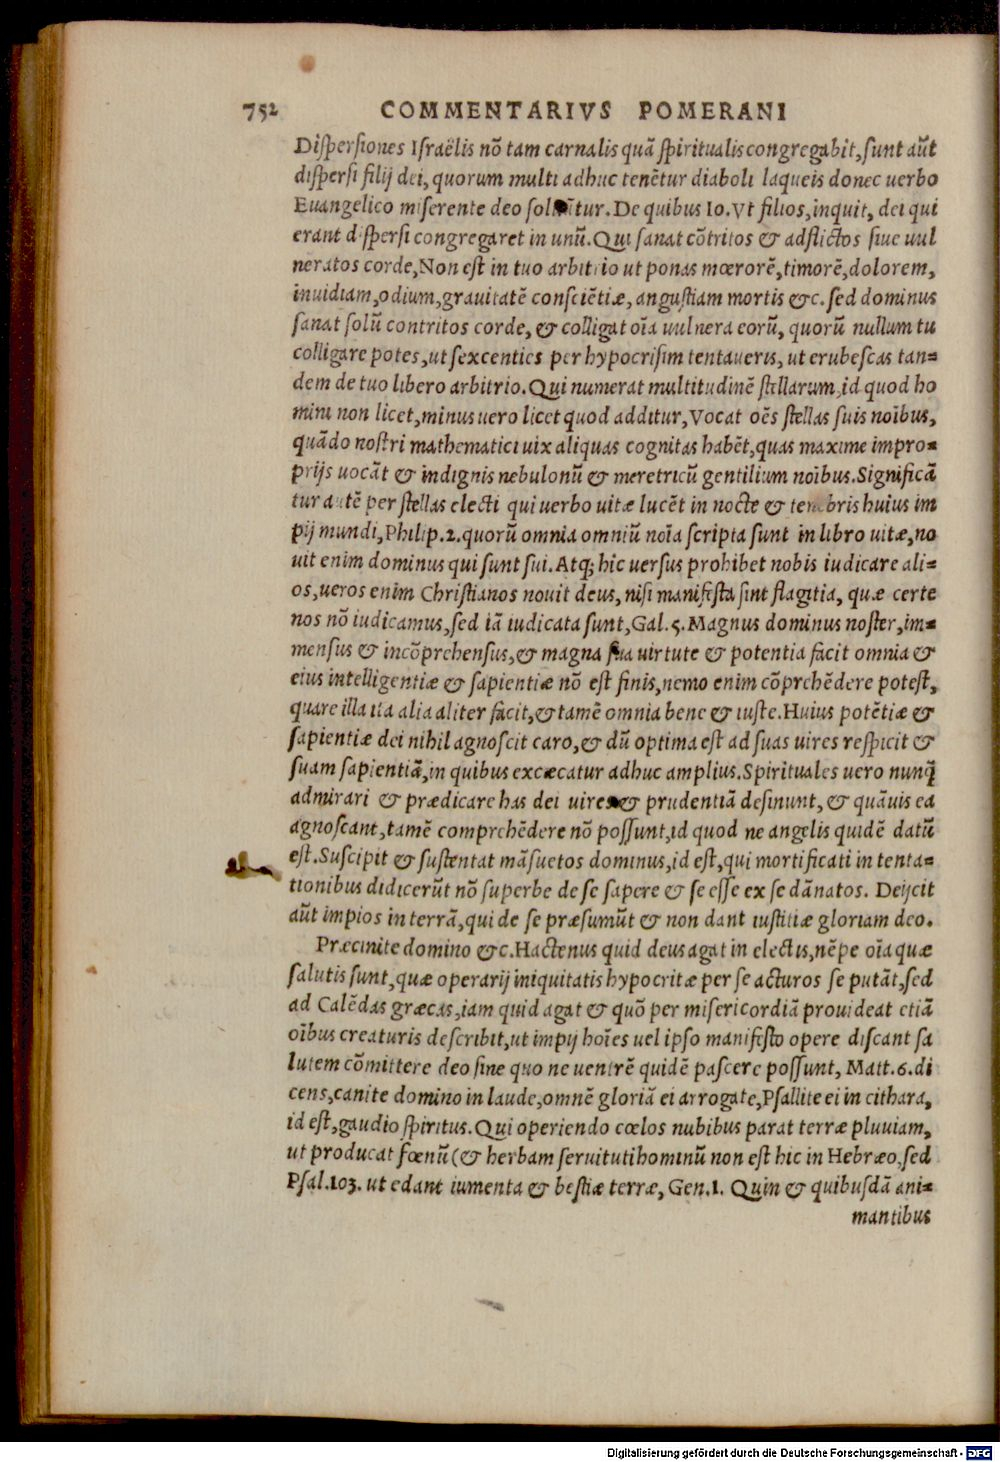 752 COMMENTARIVS POMERANI
Dispersiones Israëlis nõ tam carnalis quã spiritualis congregabit, sunt aũt
dispersi filij dei, quorum multi adhuc tenẽtur diaboli laqueis donec uerbo
Euangelico miserente deo soluũtur. De quibus Io. Vt filios, inquit, dei qui
erant dispersi congregaret in unũ. Qui sanat cõtritos & adflictos siue uul
neratos corde, Non est in tuo arbitrio ut ponas mœrorẽ, timorẽ, dolorem,
inuidiam, odium, grauitatẽ consciẽtiæ, angustiam mortis &c. sed dominus
sanat solũ contritos corde, & colligat oĩa uulnera eorũ, quorũ nullum tu
colligare potes, ut sexcenties per hypocrisim tentaueris, ut erubescas tan=
dem de tuo libero arbitrio. Qui numerat multitudinẽ stellarum, id quod ho
mini non licet, minus uero licet quod additur, Vocat oẽs stellas suis noĩbus,
quãdo nostri mathematici uix aliquas cognitas habẽt, quas maxime impro=
prijs uocãt & indignis nebulonũ & meretricũ gentilium noĩbus. Significã
tur autẽ per stellas electi qui uerbo uitæ lucẽt in nocte & tenebris huius im
pij mundi, Philip. 2. quorũ omnia omniũ noĩa scripta sunt in libro uitæ, no
uit enim dominus qui sunt sui. Atq; hic uersus prohibet nobis iudicare ali=
os, ueros enim Christianos nouit deus, nisi manifesta sint flagitia, quæ certe
nos nõ iudicamus, sed iã iudicata sunt, Gal. 5. Magnus dominus noster, im=
mensus & incõprehensus, & magna sua uirtute & potentia facit omnia &
eius intelligentiæ & sapientiæ nõ est finis, nemo enim cõprehẽdere potest,
quare illa ita alia aliter facit, & tamẽ omnia bene & iuste. Huius potẽtiæ &
sapientiæ dei nihil agnoscit caro, & dũ optima est ad suas uires respicit &
suam sapientiã, in quibus excæcatur adhuc amplius. Spirituales uero nunq̃
admirari & prædicare has dei uires & prudentiã desinunt, & quãuis ea
agnoscant, tamẽ comprehẽdere nõ possunt, id quod ne angelis quidẽ datũ
est. Suscipit & sustentat mãsuetos dominus, id est, qui mortificati in tenta=
tionibus didicerũt nõ superbe de se sapere & se esse ex se dãnatos. Deijcit
aũt impios in terrã, qui de se præsumũt & non dant iustitiæ gloriam deo.
Præcinite domino &c. Hactenus quid deus agat in electis, nẽpe oĩa quæ
salutis sunt, quæ operarij iniquitatis hypocritæ per se acturos se putãt, sed
ad Calẽdas græcas, iam quid agat & quõ per misericordiã prouideat etiã
oĩbus creaturis describit, ut impij hoĩes uel ipso manifesto opere discant sa
lutem cõmittere deo sine quo ne uentrẽ quidẽ pascere possunt, Matt. 6. di
cens, canite domino in laude, omnẽ gloriã ei arrogate, Psallite ei in cithara,
id est, gaudio spiritus. Qui operiendo cœlos nubibus parat terræ pluuiam,
ut producat fœnũ (& herbam seruituti hominũ non est hic in Hebræo, sed
Psal. 103. ut edant iumenta & bestiæ terræ, Gen. 1. Quin & quibusdã ani=
mantibus
Digitalisierung gefördert durch die Deutsche Forschungsgemeinschaft - DFG